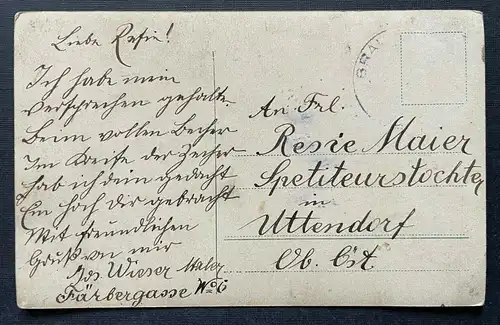 Liebe Resie!
Ich habe mein
Versprechen gehalte.
Beim vollen Becher
Im Kreise der Zecher
hab ich dein gedacht
Ein hoch dir gebracht
Mit freundlichen
Gruß von mir
Jos. Wieser Maler
Färbergasse No 6
BRAU
An Frl.
Resie Maier
Spetiteurstochter
in
Uttendorf
Ob. Öst.